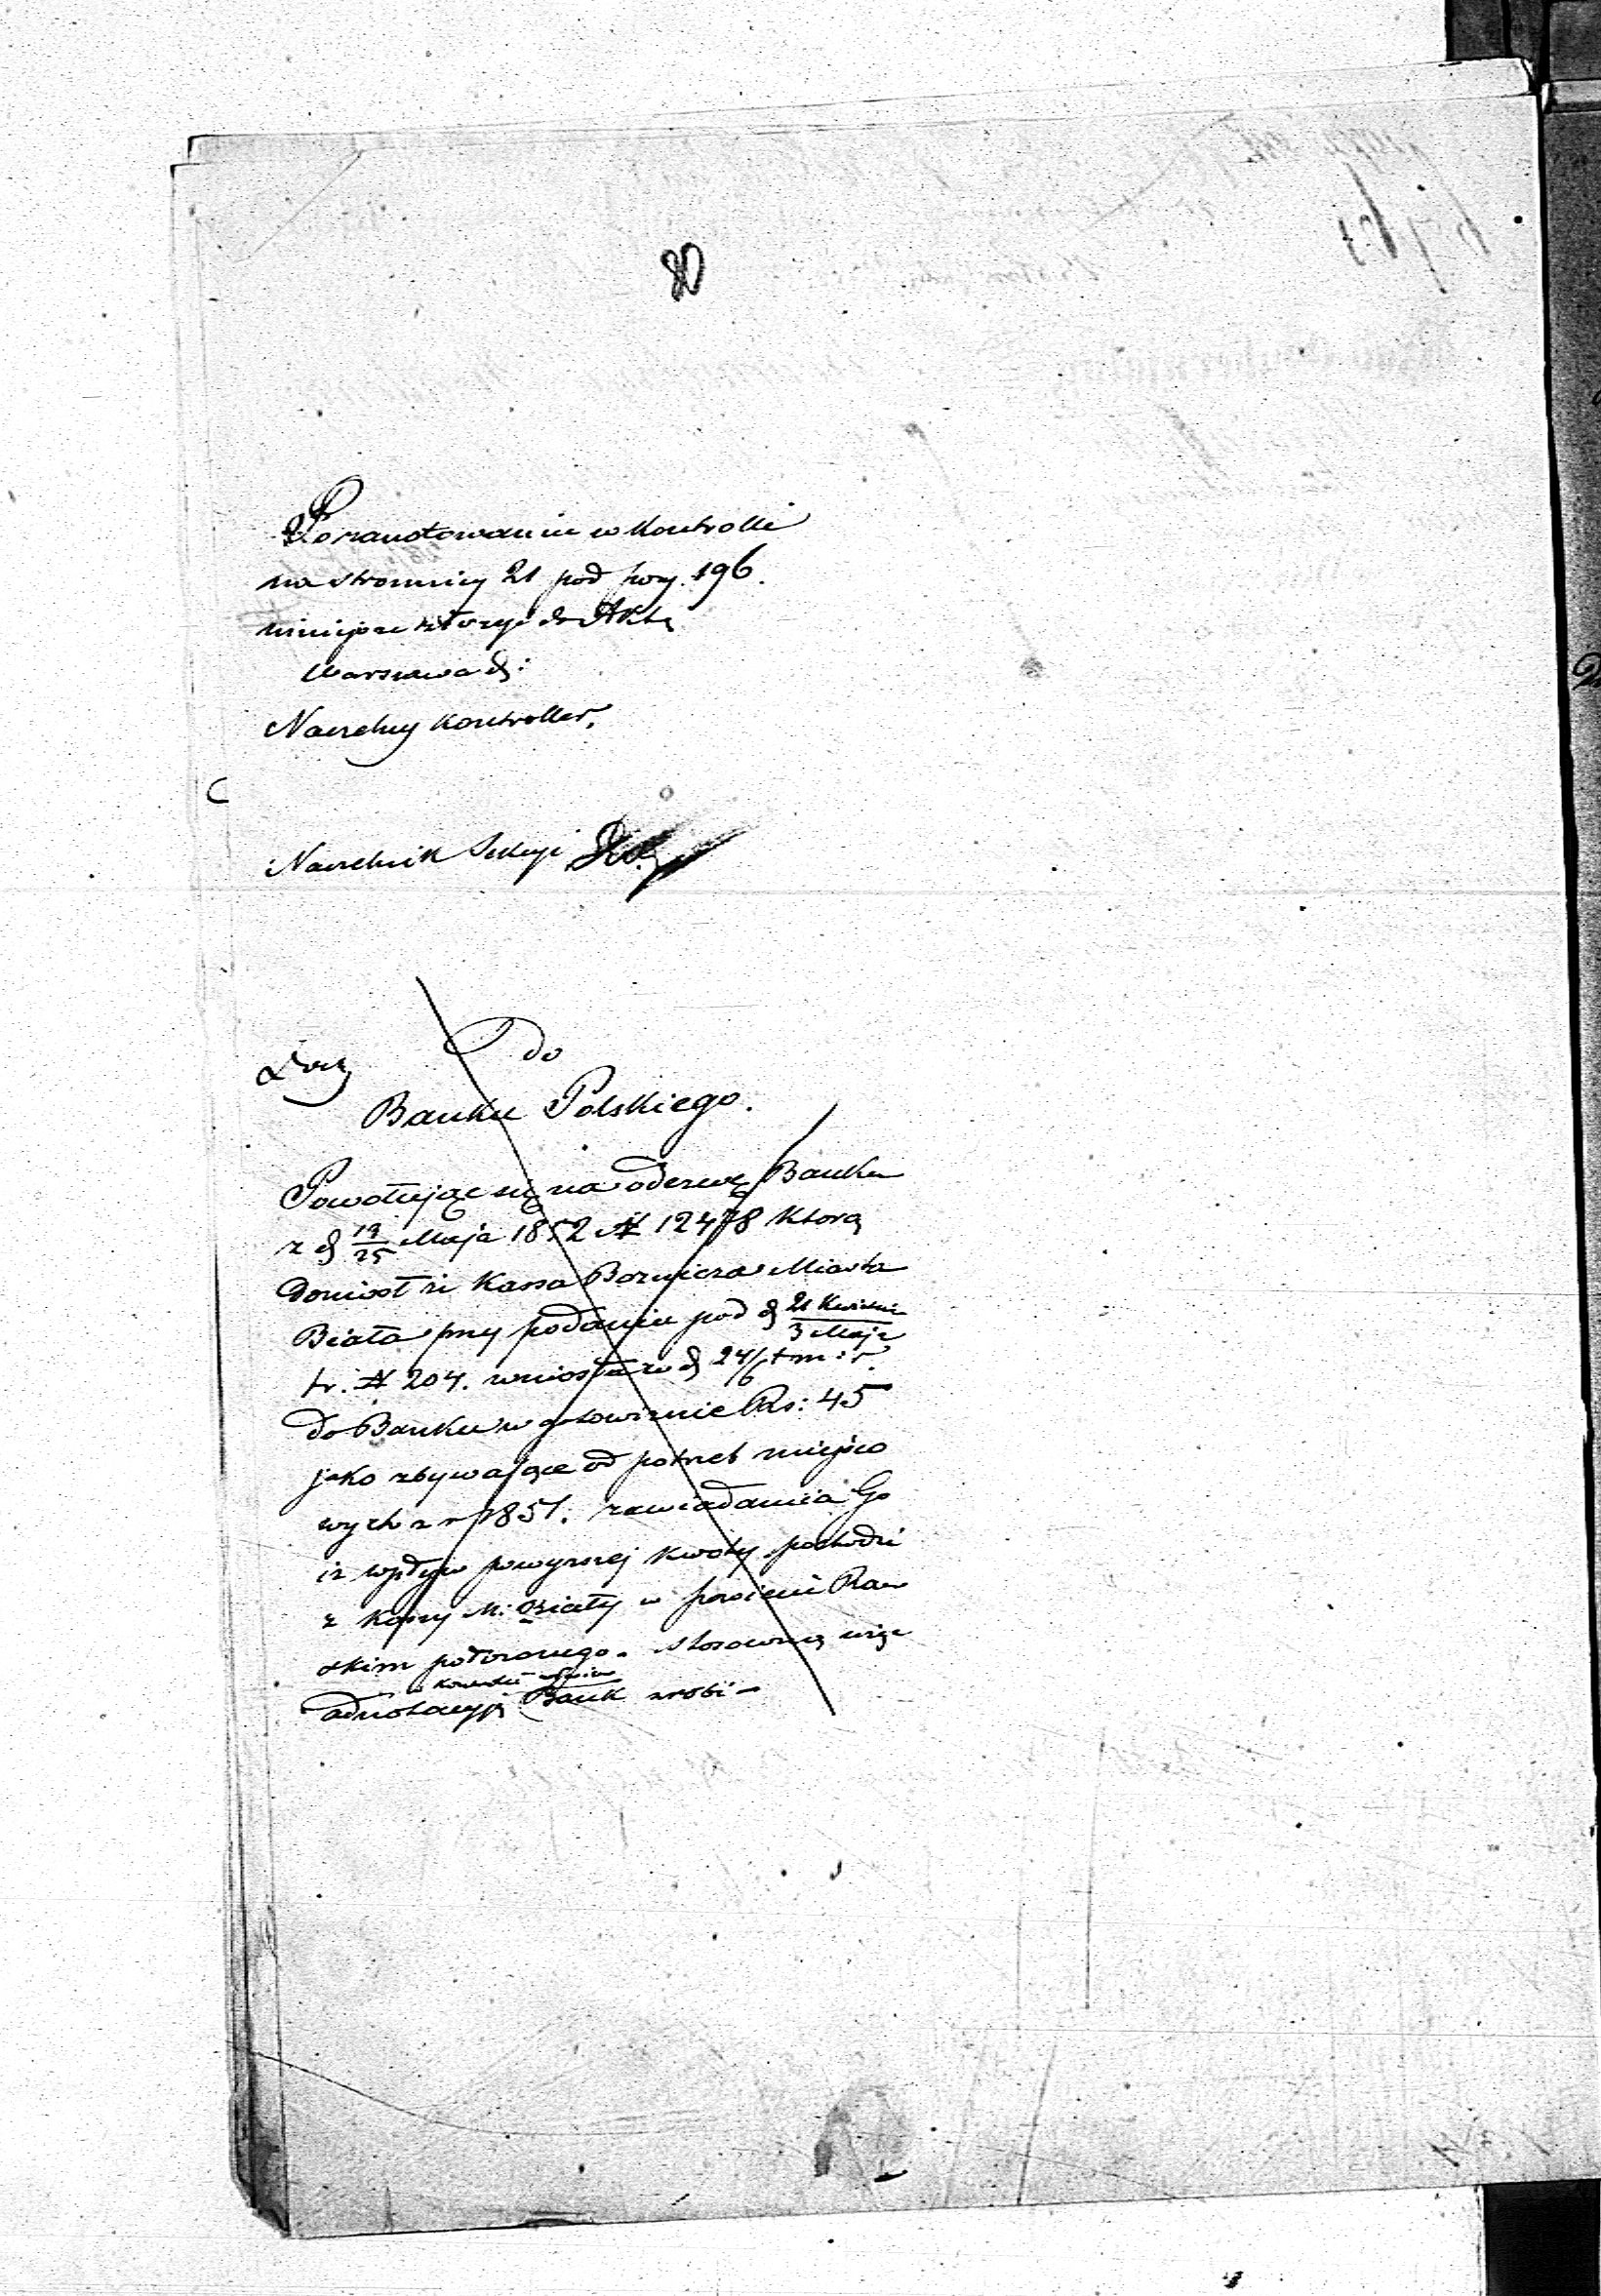 Po zanotowaniu w Kontrolli
na stronnicy 21 pod poz. 196.
niniejsze złożyć do Akt
Warszawa d:
Naczelny Kontroller,
Naczelnik Sekcyi
do
Banku Polskiego.
Powołując się na odezwę Banku
z d 13/25 Maja 1852 N 12478 którą
doniósł że Kassa Bożnicza Miasta
Biała przy podaniu pod d 21 Kwietnia/3 Maja
t.r. N 204. wniosła w d 24/6 t m i r.
do Banku w gotowiznie Rs: 45
jako zbywające od potrzeb miejsco
wych z r 1851. zawiadamia Go
iż wpływ powyższej kwoty pochodzi
z Kassy M: Biały w powiecie Raw
skim położonego. Stosowną więc
adnotacyją Bank zrobi –